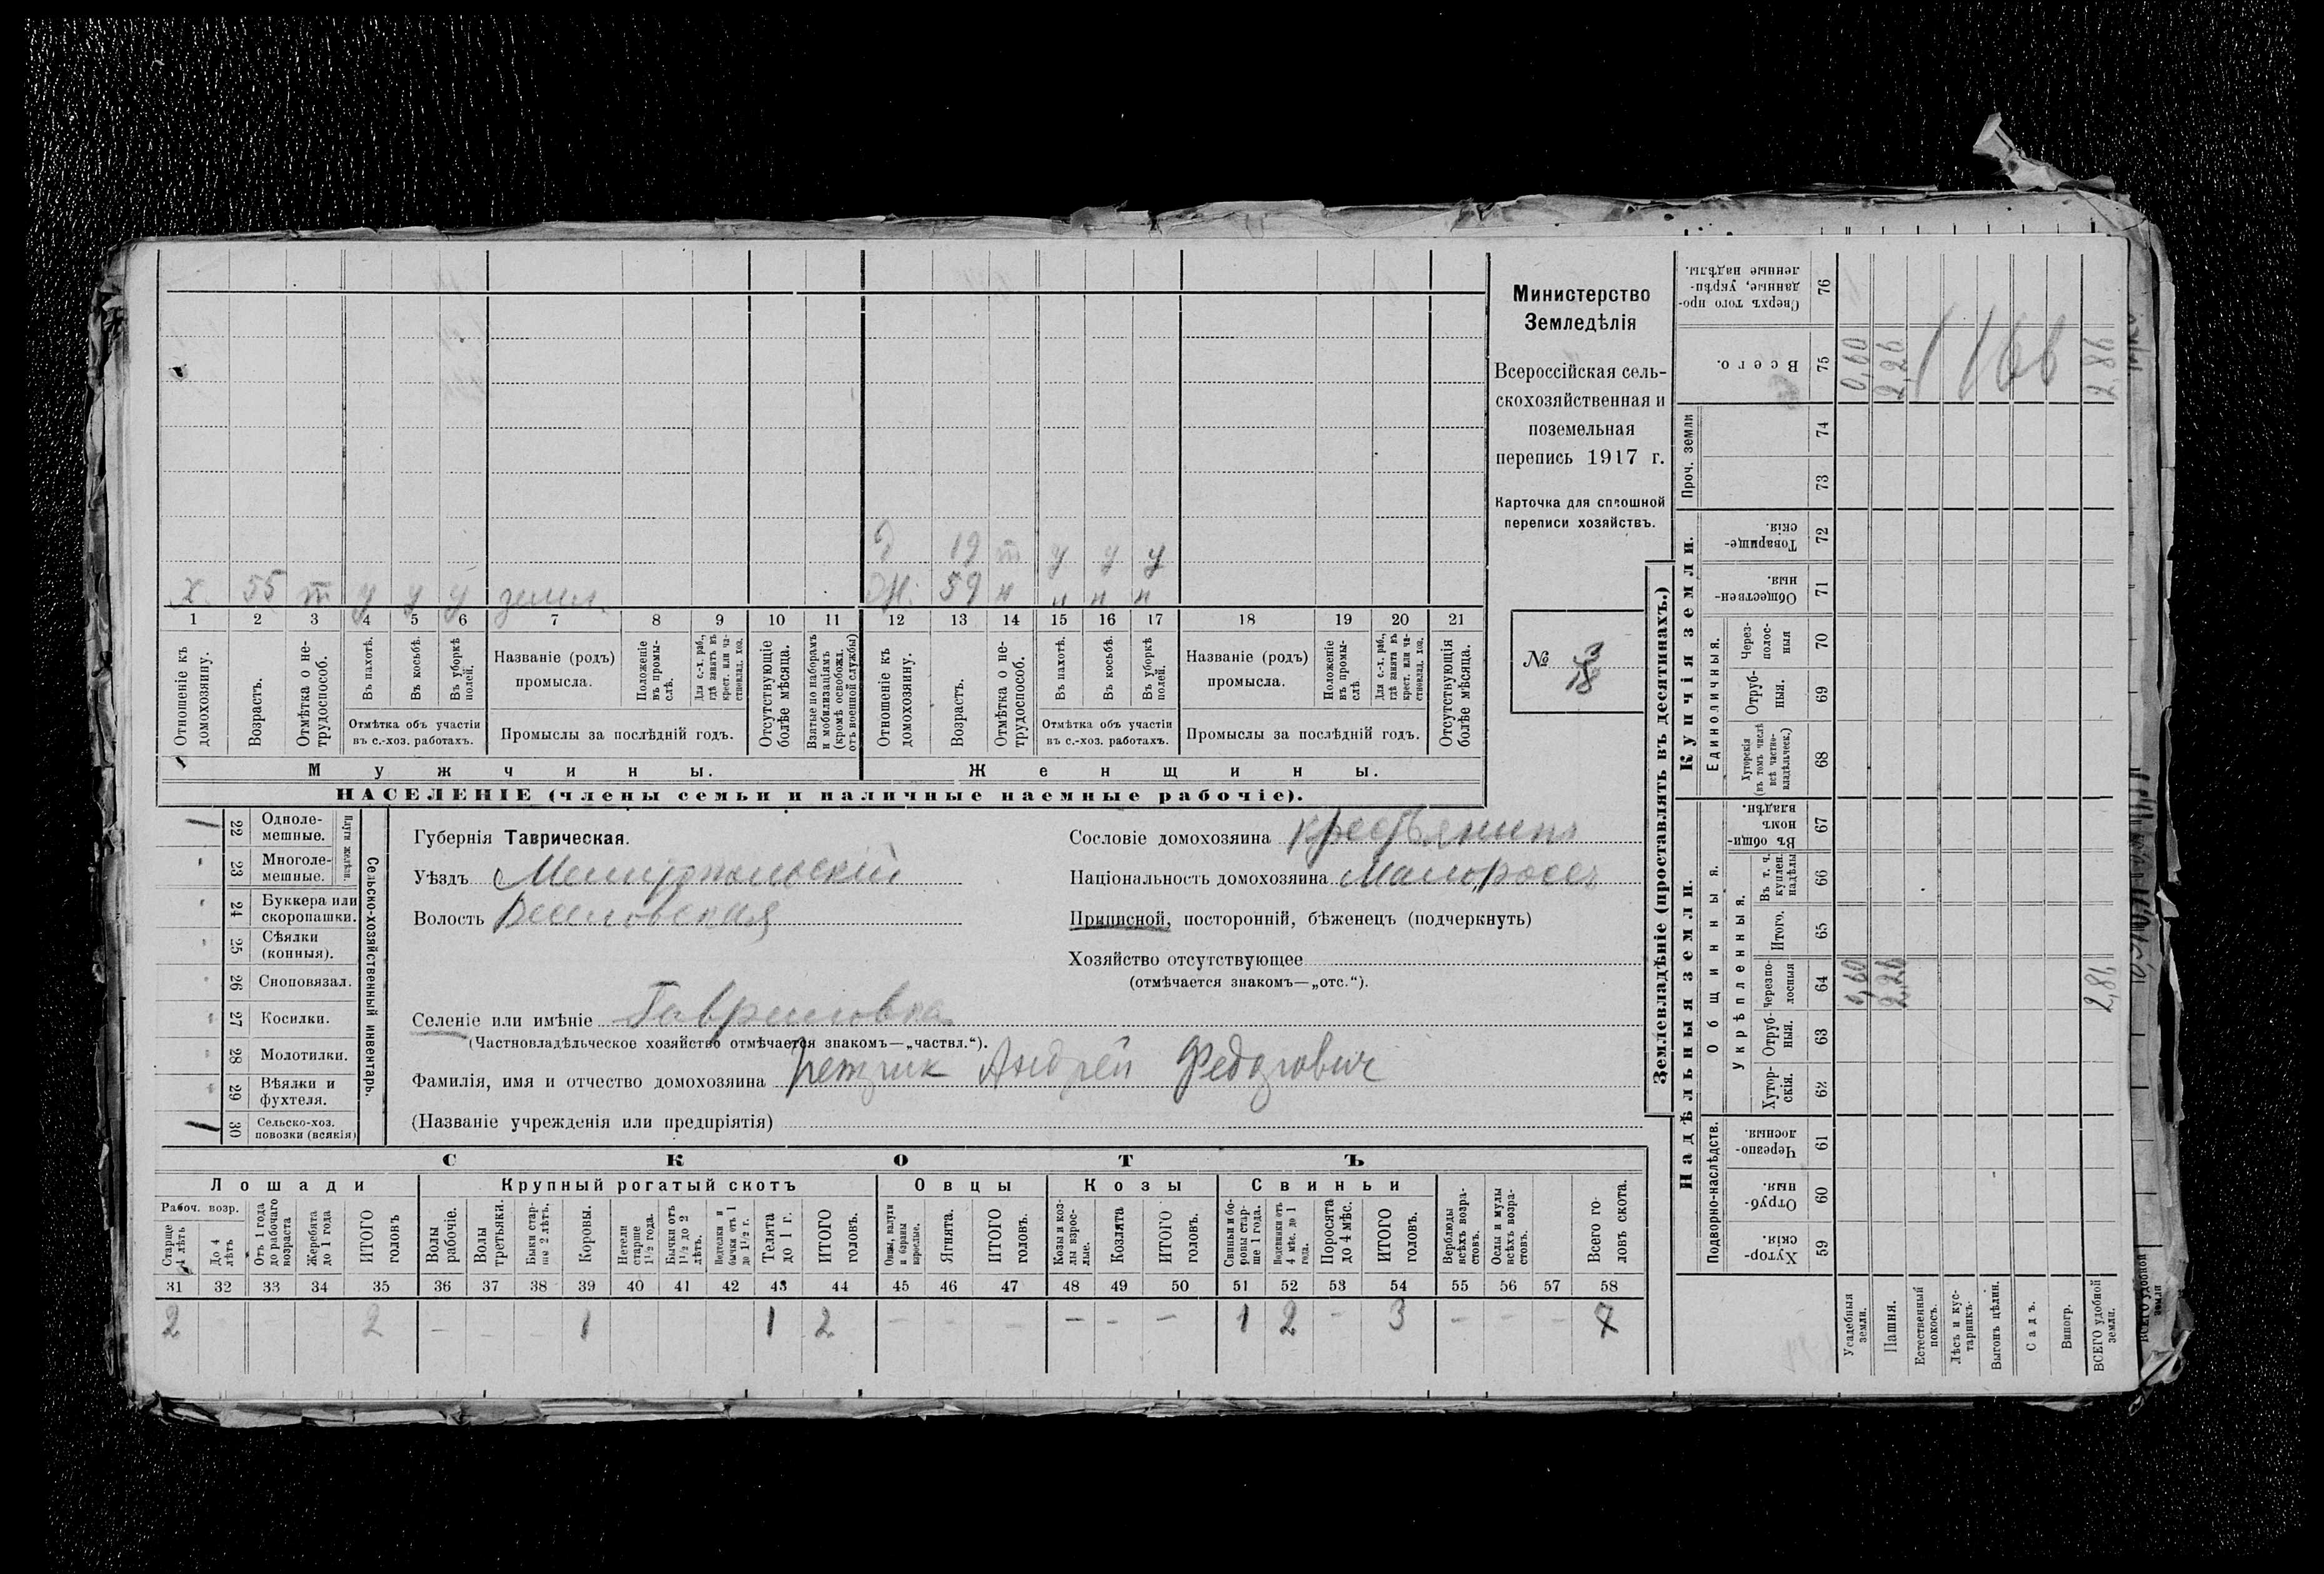 Министерство
Земледѣлія
Всероссійская сель-
скохозяйственная и
поземельная
перепись 1917 г.
Карточка для сплошной
переписи хозяйствъ.
№ 3
18
д 19 т у у у
х. 55 т у у у земл. Ж. 59 н н н н
1 2 3 4 5 6 7 8 9 10 11 12 13 14 15 16 17 18 19 20 21
Отношеніе къ домохозяину.
Возрастъ.
Отмѣтка о не-трудоспособ.
Въ пахотѣ.
Въ косьбѣ.
Въ уборкѣ полей.
Отмѣтка объ участіи
въ с.-хоз. работахъ.
Названіе (родъ)
промысла.
Положеніе въ промы-слѣ.
Для с.-х. раб., гдѣ занятъ въ крест. или ча-стновлад. хоз.
Промыслы за послѣдній годъ.
Отсутствующіе болѣе мѣсяца.
Взятые по наборамъ и мобилизаціямъ (кромѣ освобожд. отъ военной службы)
Отношеніе къ домохозяину.
Возрастъ.
Отмѣтка о не-трудоспособ.
Въ пахотѣ.
Въ косьбѣ.
Въ уборкѣ полей.
Отмѣтка объ участіи
въ с.-хоз. работахъ.
Названіе (родъ)
промысла.
Положеніе въ промы-слѣ.
Для с.-х. раб., гдѣ занята въ крест. или ча-стновлад. хоз.
Промыслы за послѣдній годъ.
Отсутствующія болѣе мѣсяца.
Мужчины. Женщины.
НАСЕЛЕНІЕ (члены семьи и наличные наемные рабочіе).
1 22 Одноле-мешные.
23 Многоле-мешные.
Плуги желѣзн.
24 Буккера или скоропашки.
25 Сѣялки (конныя).
26 Сноповязал.
27 Косилки.
28 Молотилки.
29 Вѣялки и фухтеля.
1 30 Сельско-хоз. повозки (всякія)
Сельско-хозяйственный инвентарь.
Губернія Таврическая.
Уѣздъ Мелитопольскій
Волость Веселовская
Сословіе домохозяина крестьянинъ
Національность домохозяина Малороссъ
Приписной, посторонній, бѣженецъ (подчеркнуть)
Хозяйство отсутствующее
(отмѣчается знакомъ—„отс.“).
Селеніе или имѣніе Гавриловка
(Частновладѣльческое хозяйство отмѣчается знакомъ—„частвл.“).
Фамилія, имя и отчество домохозяина Андрей Федорович
(Названіе учрежденія или предпріятія)
СКОТЪ
Лошади Крупный рогатый скотъ Овцы Козы Свиньи
Рабоч. возр.
Старше 4 лѣтъ
До 4 лѣтъ
Отъ 1 года до рабочаго возраста
Жеребята до 1 года
ИТОГО головъ
Волы рабочіе.
Волы третьяки.
Быки стар-ше 2 лѣтъ.
Коровы.
Нетели старше 1½ года.
Бычки отъ 1½ до 2 лѣтъ.
Подтелки и бычки отъ 1 до 1½ г.
Телята до 1 г.
ИТОГО головъ.
Овцы, валухи и бараны взрослые.
Ягнята.
ИТОГО головъ.
Козы и коз-лы взрос-лые.
Козлята
ИТОГО головъ.
Свиньи и бо-ровы стар-ше 1 года.
Подсвинки отъ 4 мѣс. до 1 года.
Поросята до 4 мѣс.
ИТОГО головъ.
Верблюды всѣхъ возра-стовъ.
Ослы и мулы всѣхъ возра-стовъ.
Всего го-ловъ скота.
31 32 33 34 35 36 37 38 39 40 41 42 43 44 45 46 47 48 49 50 51 52 53 54 55 56 57 58
2 - 2 - - - 1 1 2 - - - - - - 1 2 - 3 - - - 7
Землевладѣніе (проставлять въ десятинахъ.)
Надѣльныя земли. Купчія земли.
Подворно-наслѣдств.
Общинныя.
Укрѣпленныя.
Единоличныя.
Проч. земли
Хутор-скія. 59
Отруб-ныя. 60
Черезпо-лосныя. 61
Хутор-скія. 62
Отруб-ныя. 63
Черезпо-лосныя 64
Итого. 65
Въ т. ч. куплен. надѣлы 66
Въ общин-номъ владѣн. 67
Хуторскія (въ томъ числѣ всѣ частно-владѣльческ.) 68
Отруб-ныя. 69
Через-полос-ныя 70
Обществен-ныя. 71
Товарище-скія. 72
73
74
Всего. 75
Сверхъ того про-данные, укрѣп-ленные надѣлы. 76
Усадебныя земли. 0,60 0,60
Пашня. 2,26 2,26
Естественный покосъ.
Лѣсъ и кус-тарникъ.
Выгонъ цѣлин.
Садъ.
Виногр.
ВСЕГО удобной земли. 2,86 2,86
ВСЕГО удобной земли